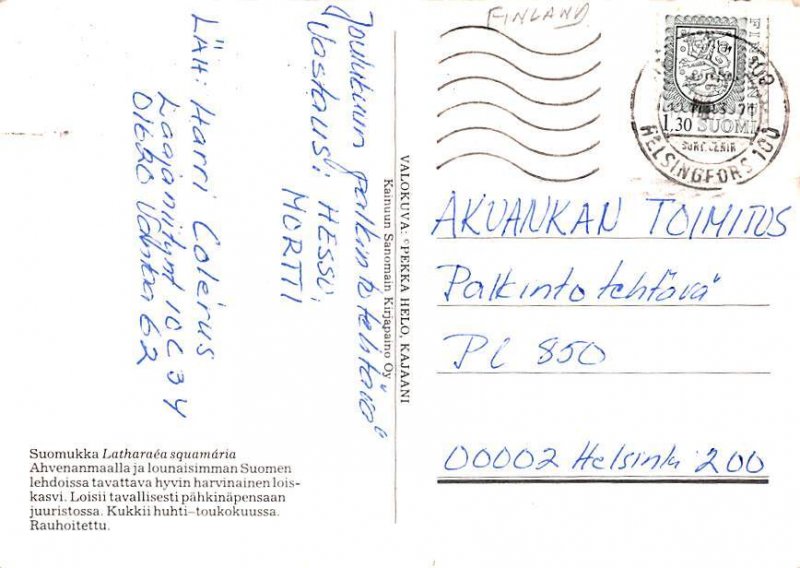 FINLAND
FINLAND
1,30 SUOMI
HELSINGFORS 100
Joulukuun palkintotehtävä
Vastaus: HESSU,
MORTTI
LÄH: Harri Colerus
Laajaniitynt 10 C 34
01620 Vantaa 62
VALOKUVA: ©PEKKA HELO, KAJAANI
Kainuun Sanomain Kirjapaino Oy
AKUANKAN TOIMITUS
Palkintotehtävä
PL 850
00002 Helsinki 200
Suomukka Latharaéa squamária
Ahvenanmaalla ja lounaisimman Suomen
lehdoissa tavattava hyvin harvinainen lois-
kasvi. Loisii tavallisesti pähkinäpensaan
juuristossa. Kukkii huhti–toukokuussa.
Rauhoitettu.